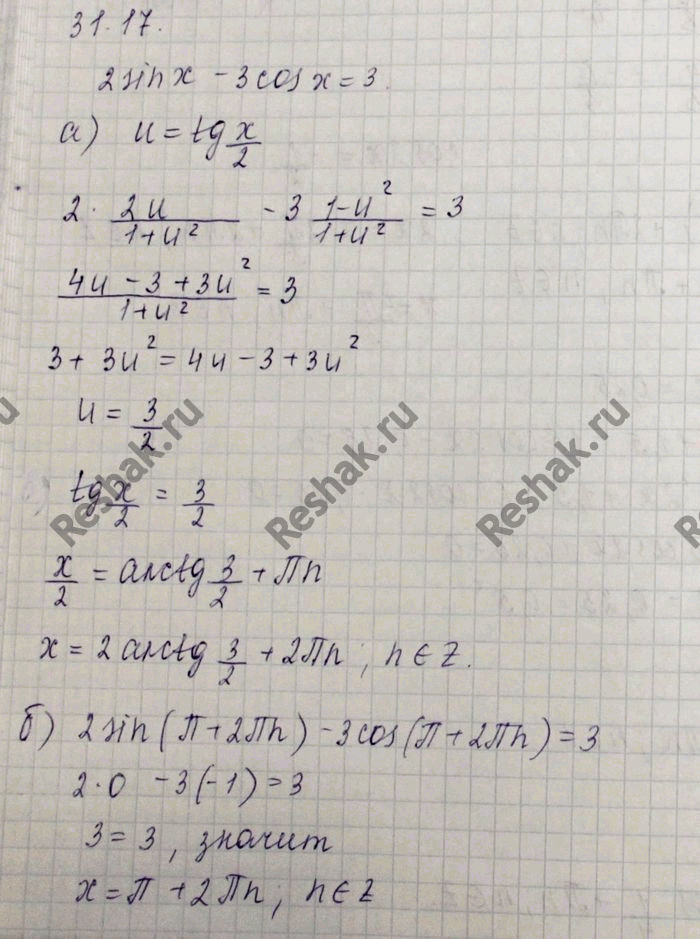 31.17.
2sinx - 3cosx = 3.
а) u = tg x/2
2 · 2u/(1+u²) - 3 (1-u²)/(1+u²) = 3
(4u - 3 + 3u²)/(1+u²) = 3
3 + 3u² = 4u - 3 + 3u²
u = 3/2
tg x/2 = 3/2
x/2 = arctg 3/2 + Πn
x = 2arctg 3/2 + 2Πn ; n ∈ Z.
б) 2sin(π + 2Πn) - 3cos(π + 2Πn) = 3
2·0 - 3(-1) = 3
3 = 3, значит
x = π + 2Πn ; n ∈ Z
Reshak.ru Reshak.ru Reshak.ru